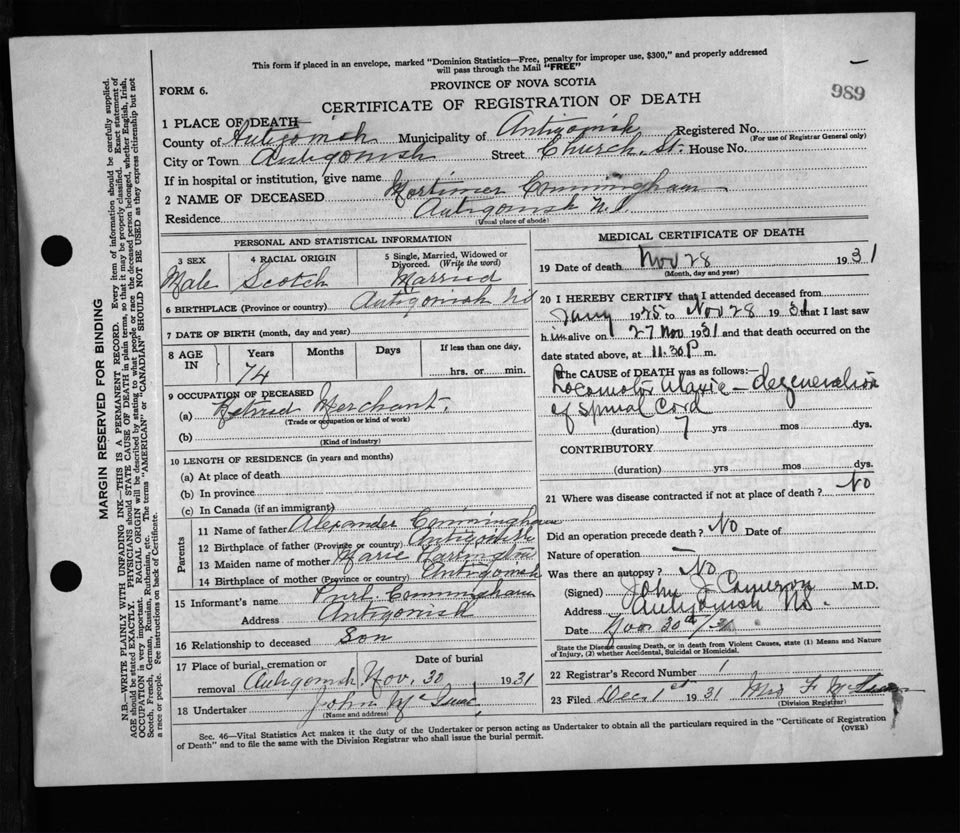 This form if placed in an envelope, marked "Dominion Statistics—Free, penalty for improper use, $300," and properly addressed
will pass through the Mail "FREE"
FORM 6.
PROVINCE OF NOVA SCOTIA
989
CERTIFICATE OF REGISTRATION OF DEATH
1 PLACE OF DEATH
County of Antigonish Municipality of Antigonish Registered No.
(For use of Registrar General only)
City or Town Antigonish Street Church St. House No.
If in hospital or institution, give name
2 NAME OF DECEASED Mortimer Cunningham
Residence Antigonish N.S.
(Usual place of abode)
PERSONAL AND STATISTICAL INFORMATION
3 SEX 4 RACIAL ORIGIN 5 Single, Married, Widowed or
Divorced. (Write the word)
Male Scotch Married
6 BIRTHPLACE (Province or country) Antigonish NS
7 DATE OF BIRTH (month, day and year)
8 AGE IN Years Months Days If less than one day,
74 hrs. or min.
9 OCCUPATION OF DECEASED
(a) Retired Merchant.
(Trade or occupation or kind of work)
(b)
(Kind of industry)
10 LENGTH OF RESIDENCE (in years and months)
(a) At place of death
(b) In province
(c) In Canada (if an immigrant)
Parents
11 Name of father Alexander Cunningham
12 Birthplace of father (Province or country) Antigonish
13 Maiden name of mother Marie Harrington
14 Birthplace of mother (Province or country) Antigonish
15 Informant's name Cunningham
Address Antigonish
16 Relationship to deceased Son
17 Place of burial, cremation or Date of burial
removal Antigonish Nov. 30 1931
18 Undertaker John McIsaac
(Name and address)
MEDICAL CERTIFICATE OF DEATH
19 Date of death Nov 28 1931
(Month, day and year)
20 I HEREBY CERTIFY that I attended deceased from
Jany 1925 to Nov 28 1931 that I last saw
h im alive on 27 Nov 1931 and that death occurred on the
date stated above, at 11.30 P m.
The CAUSE OF DEATH was as follows:—
Locomotor Ataxia – degeneration
of spinal cord
(duration) 7 yrs mos dys.
CONTRIBUTORY
(duration) yrs mos dys.
21 Where was disease contracted if not at place of death? No
Did an operation precede death? No Date of
Nature of operation —
Was there an autopsy? No
(Signed) John J Cameron M.D.
Address Antigonish NS.
Date Nov 30th/31
State the Disease causing Death, or in death from Violent Causes, state (1) Means and Nature
of Injury, (2) whether Accidental, Suicidal or Homicidal.
22 Registrar's Record Number 1
23 Filed Dec 1st 1931 Mrs F
(Division Registrar)
Sec. 46—Vital Statistics Act makes it the duty of the Undertaker or person acting as Undertaker to obtain all the particulars required in the "Certificate of Registration
of Death" and to file the same with the Division Registrar who shall issue the burial permit.
(OVER)
MARGIN RESERVED FOR BINDING
N.B.—WRITE PLAINLY WITH UNFADING INK—THIS IS A PERMANENT RECORD. Every item of information should be carefully supplied.
AGE should be stated EXACTLY. PHYSICIANS should STATE CAUSE OF DEATH in plain terms, so that it may be properly classified. Exact statement of
OCCUPATION is very important. RACIAL ORIGIN will be described by stating to what people or race the deceased person belonged, whether English, Irish,
Scotch, French, German, Russian, Ruthenian, etc. The terms "AMERICAN" or "CANADIAN" SHOULD NOT BE USED as they express citizenship but not
a race or people. See instructions on back of Certificate.